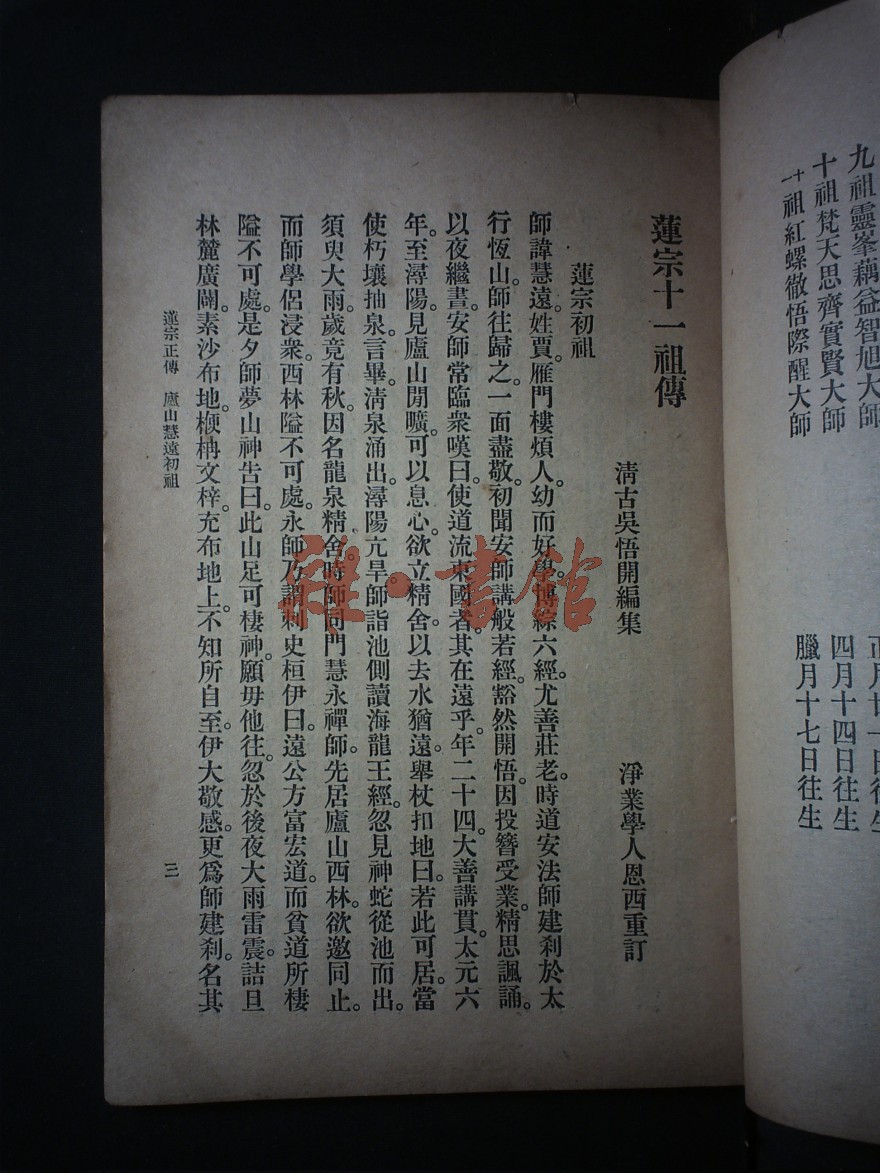 九祖靈峯蕅益智旭大師
正月廿一日往生
十祖梵天思齊實賢大師
四月十四日往生
十一祖紅螺徹悟際醒大師
臘月十七日往生
蓮宗十一祖傳
清古吳悟開編集
淨業學人恩西重訂
蓮宗初祖
師諱慧遠。姓賈。雁門樓煩人。幼而好學。博綜六經。尤善莊老。時道安法師建刹於太
行恆山。師往歸之。一面盡敬。初聞安師講般若經。豁然開悟。因投簪受業。精思諷誦。
以夜繼晝。安師常臨衆嘆曰。使道流東國者。其在遠乎。年二十四。大善講貫。太元六
年。至潯陽。見廬山閒曠。可以息心。欲立精舍。以去水猶遠。舉杖扣地曰。若此可居。當
使朽壤抽泉。言畢。清泉涌出。潯陽亢旱。師詣池側讀海龍王經。忽見神蛇從池而出。
須臾大雨。歲竟有秋。因名龍泉精舍。時師同門慧永禪師。先居廬山西林。欲邀同止。
而師學侶浸衆。西林隘不可處。永師乃謂刺史桓伊曰。遠公方富宏道。而貧道所棲
隘不可處。是夕師夢山神告曰。此山足可棲神。願毋他往。忽於後夜大雨雷震。詰旦
林麓廣闢。素沙布地。楩柟文梓。充布地上。不知所自至。伊大敬感。更爲師建刹。名其
蓮宗正傳 廬山慧遠初祖
三
雜·書館